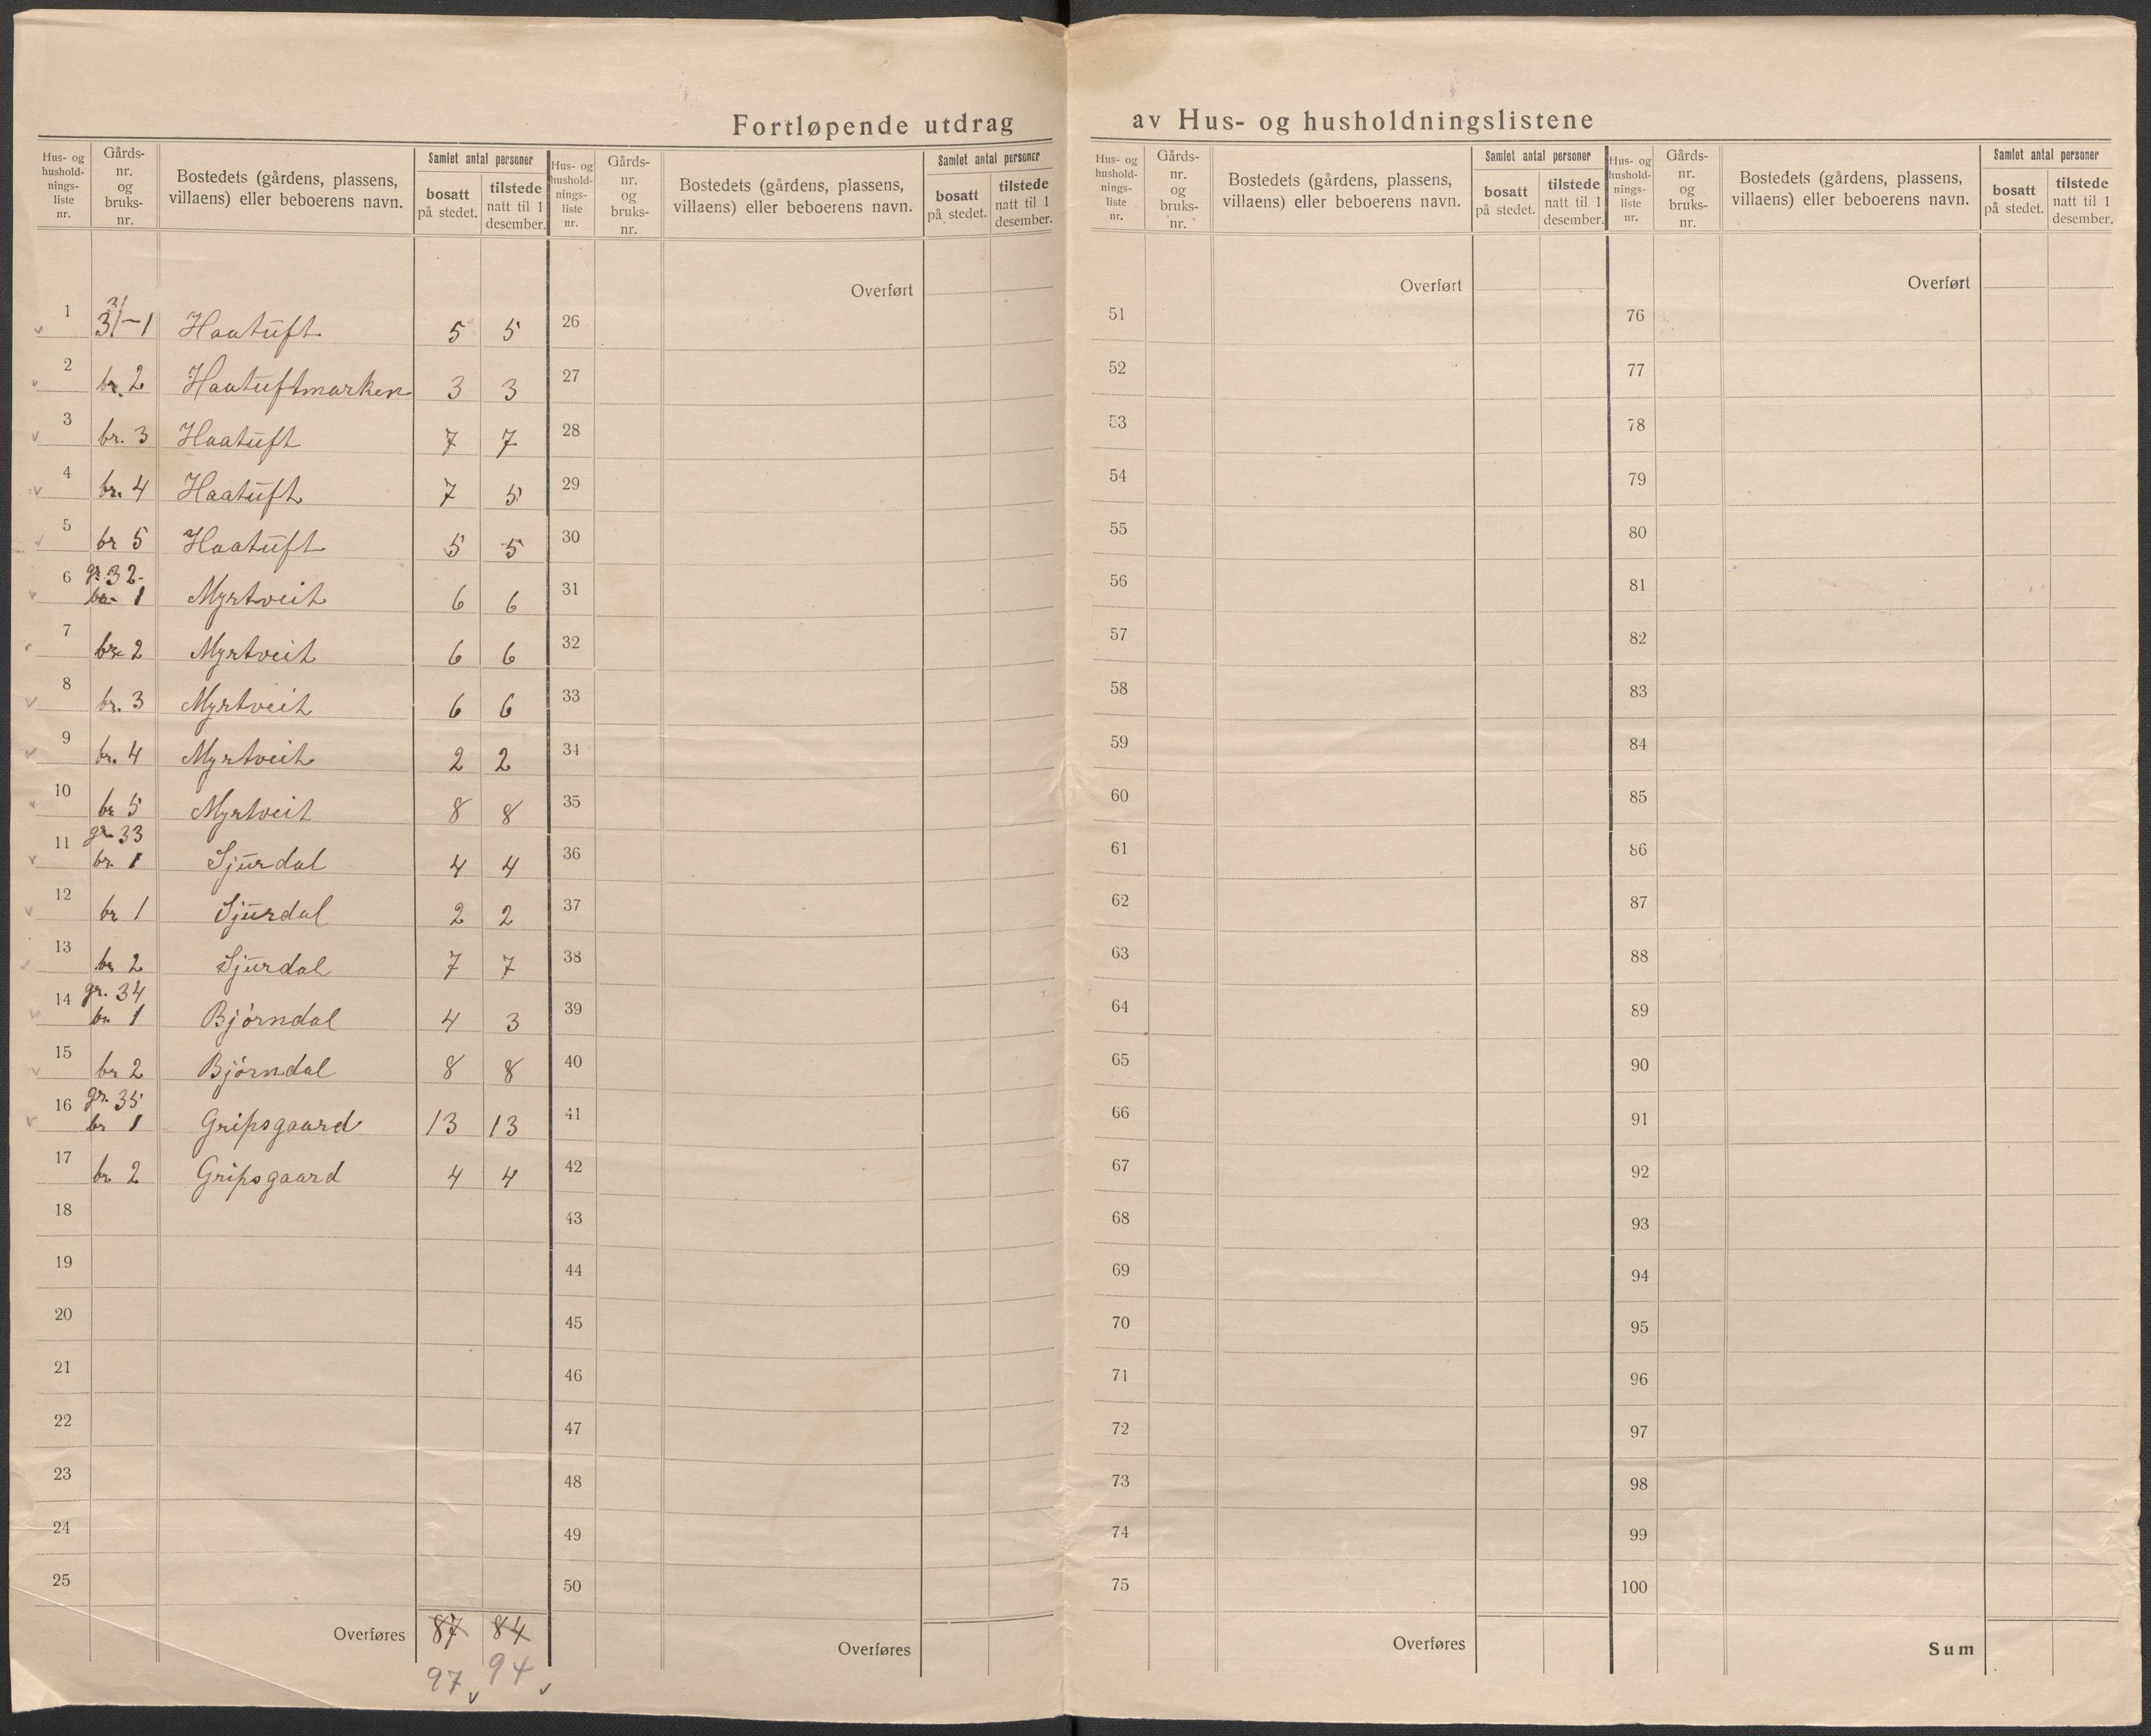 Fortløpende utdrag av Hus- og husholdningslistene
Hus- og hushold-nings-liste nr. Gårds-nr. og bruks-nr. Bostedets (gårdens, plassens, villaens) eller beboerens navn. Samlet antal personer bosatt på stedet. tilstede natt til 1 desember.
Hus- og hushold-nings-liste nr. Gårds-nr. og bruks-nr. Bostedets (gårdens, plassens, villaens) eller beboerens navn. Samlet antal personer bosatt på stedet. tilstede natt til 1 desember.
Hus- og hushold-nings-liste nr. Gårds-nr. og bruks-nr. Bostedets (gårdens, plassens, villaens) eller beboerens navn. Samlet antal personer bosatt på stedet. tilstede natt til 1 desember.
Hus- og hushold-nings-liste nr. Gårds-nr. og bruks-nr. Bostedets (gårdens, plassens, villaens) eller beboerens navn. Samlet antal personer bosatt på stedet. tilstede natt til 1 desember.
31
1 31-1 Haatuft 5 5
2 br. 2 Haatuftmarken 3 3
3 br. 3 Haatuft 7 7
4 br. 4 Haatuft 7 5
5 br 5 Haatuft 5 5
gr. 32-
6 br- 1 Myrtveit 6 6
7 br. 2 Myrtveit 6 6
8 br. 3 Myrtveit 6 6
9 br. 4 Myrtveit 2 2
10 br 5 Myrtveit 8 8
gr 33
11 br. 1 Sjurdal 4 4
12 br 1 Sjurdal 2 2
13 br 2 Sjurdal 7 7
gr. 34
14 br. 1 Bjørndal 4 3
15 br 2 Bjørndal 8 8
gr. 35
16 br 1 Gripsgaard 13 13
17 br. 2 Gripsgaard 4 4
18
19
20
21
22
23
24
25
Overføres 87 84
97 94
Overført
26
27
28
29
30
31
32
33
34
35
36
37
38
39
40
41
42
43
44
45
46
47
48
49
50
Overføres
Overført
51
52
53
54
55
56
57
58
59
60
61
62
63
64
65
66
67
68
69
70
71
72
73
74
75
Overføres
Overført
76
77
78
79
80
81
82
83
84
85
86
87
88
89
90
91
92
93
94
95
96
97
98
99
100
Sum